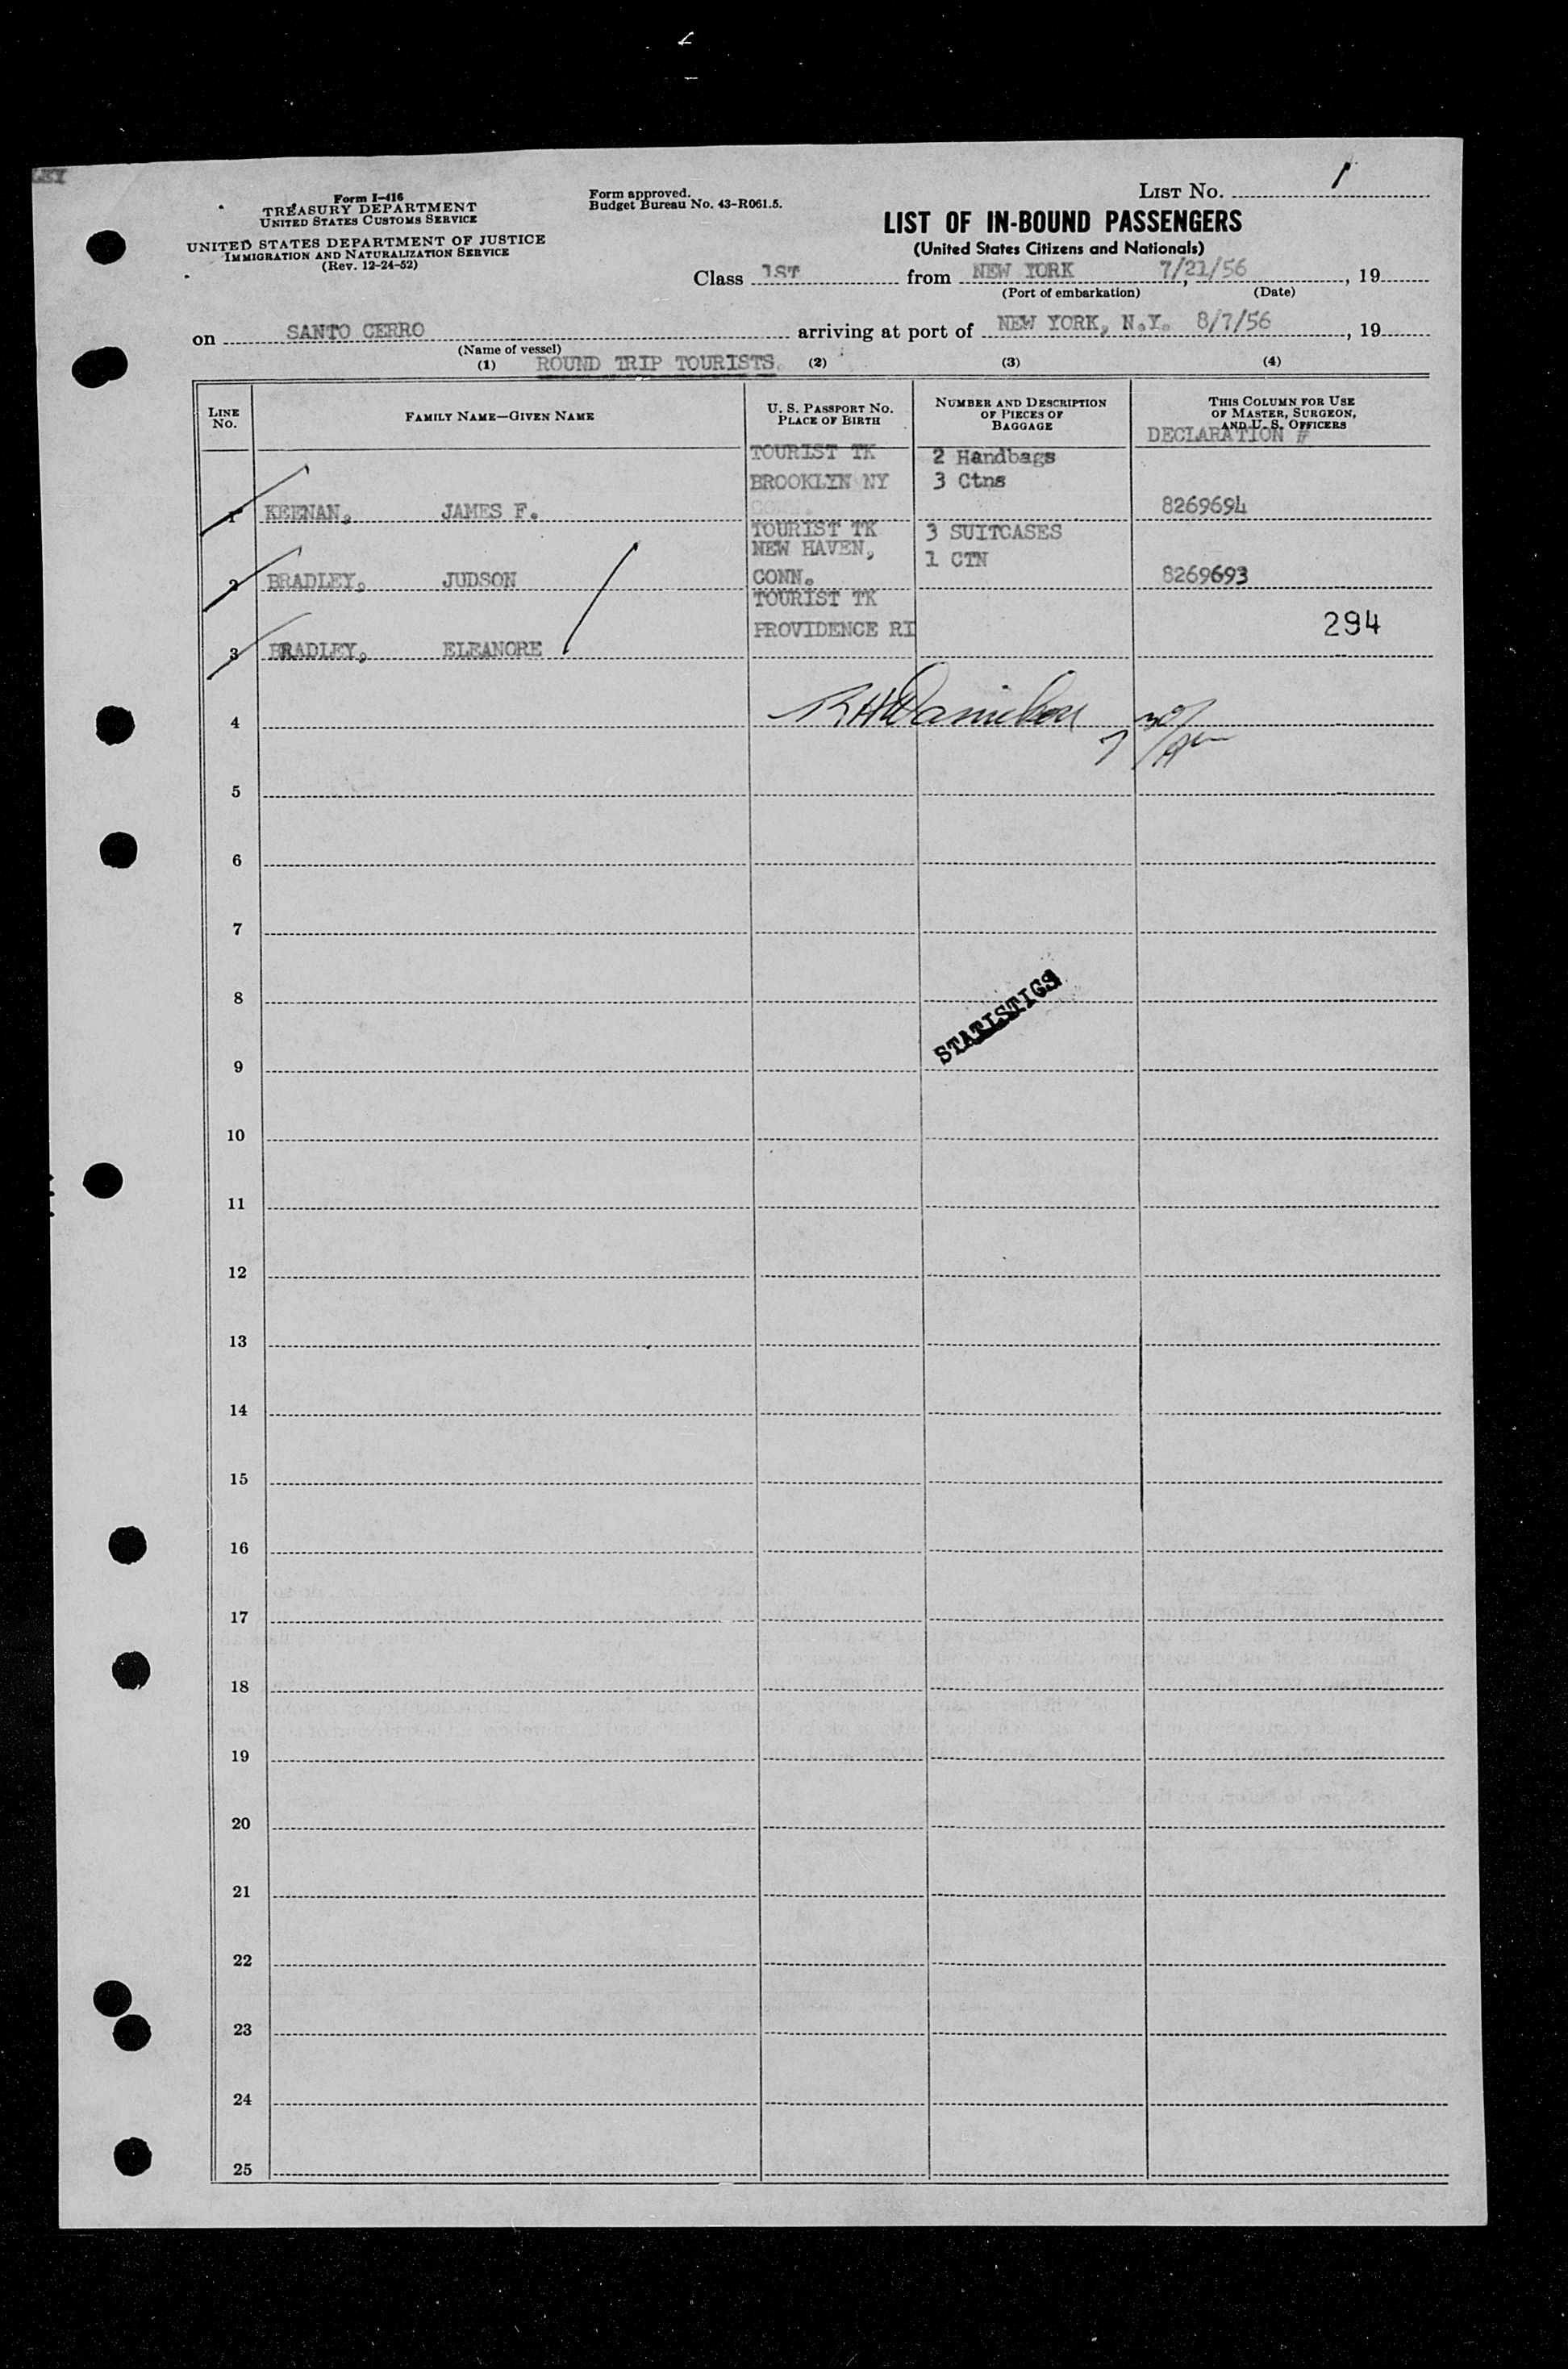 Form I-416
TREASURY DEPARTMENT
UNITED STATES CUSTOMS SERVICE
UNITED STATES DEPARTMENT OF JUSTICE
IMMIGRATION AND NATURALIZATION SERVICE
(Rev. 12-24-52)
Form approved.
Budget Bureau No. 43-R061.5.
LIST No. 1
LIST OF IN-BOUND PASSENGERS
(United States Citizens and Nationals)
Class 1ST from NEW YORK 7/21/56, 19
(Port of embarkation) (Date)
on SANTO CERRO arriving at port of NEW YORK, N.Y. 8/7/56, 19
(Name of vessel)
(1) ROUND TRIP TOURISTS (2) (3) (4)
LINE No. FAMILY NAME—GIVEN NAME U. S. PASSPORT NO. PLACE OF BIRTH NUMBER AND DESCRIPTION OF PIECES OF BAGGAGE THIS COLUMN FOR USE OF MASTER, SURGEON, AND U. S. OFFICERS
DECLARATION #
TOURIST TK 2 Handbags
BROOKLYN NY 3 Ctns
1 KEENAN, JAMES F. 8269694
TOURIST TK 3 SUITCASES
NEW HAVEN, 1 CTN
2 BRADLEY, JUDSON CONN. 8269693
TOURIST TK
PROVIDENCE RI 294
3 BRADLEY, ELEANORE
4
5
6
7
8
STATISTICS
9
10
11
12
13
14
15
16
17
18
19
20
21
22
23
24
25